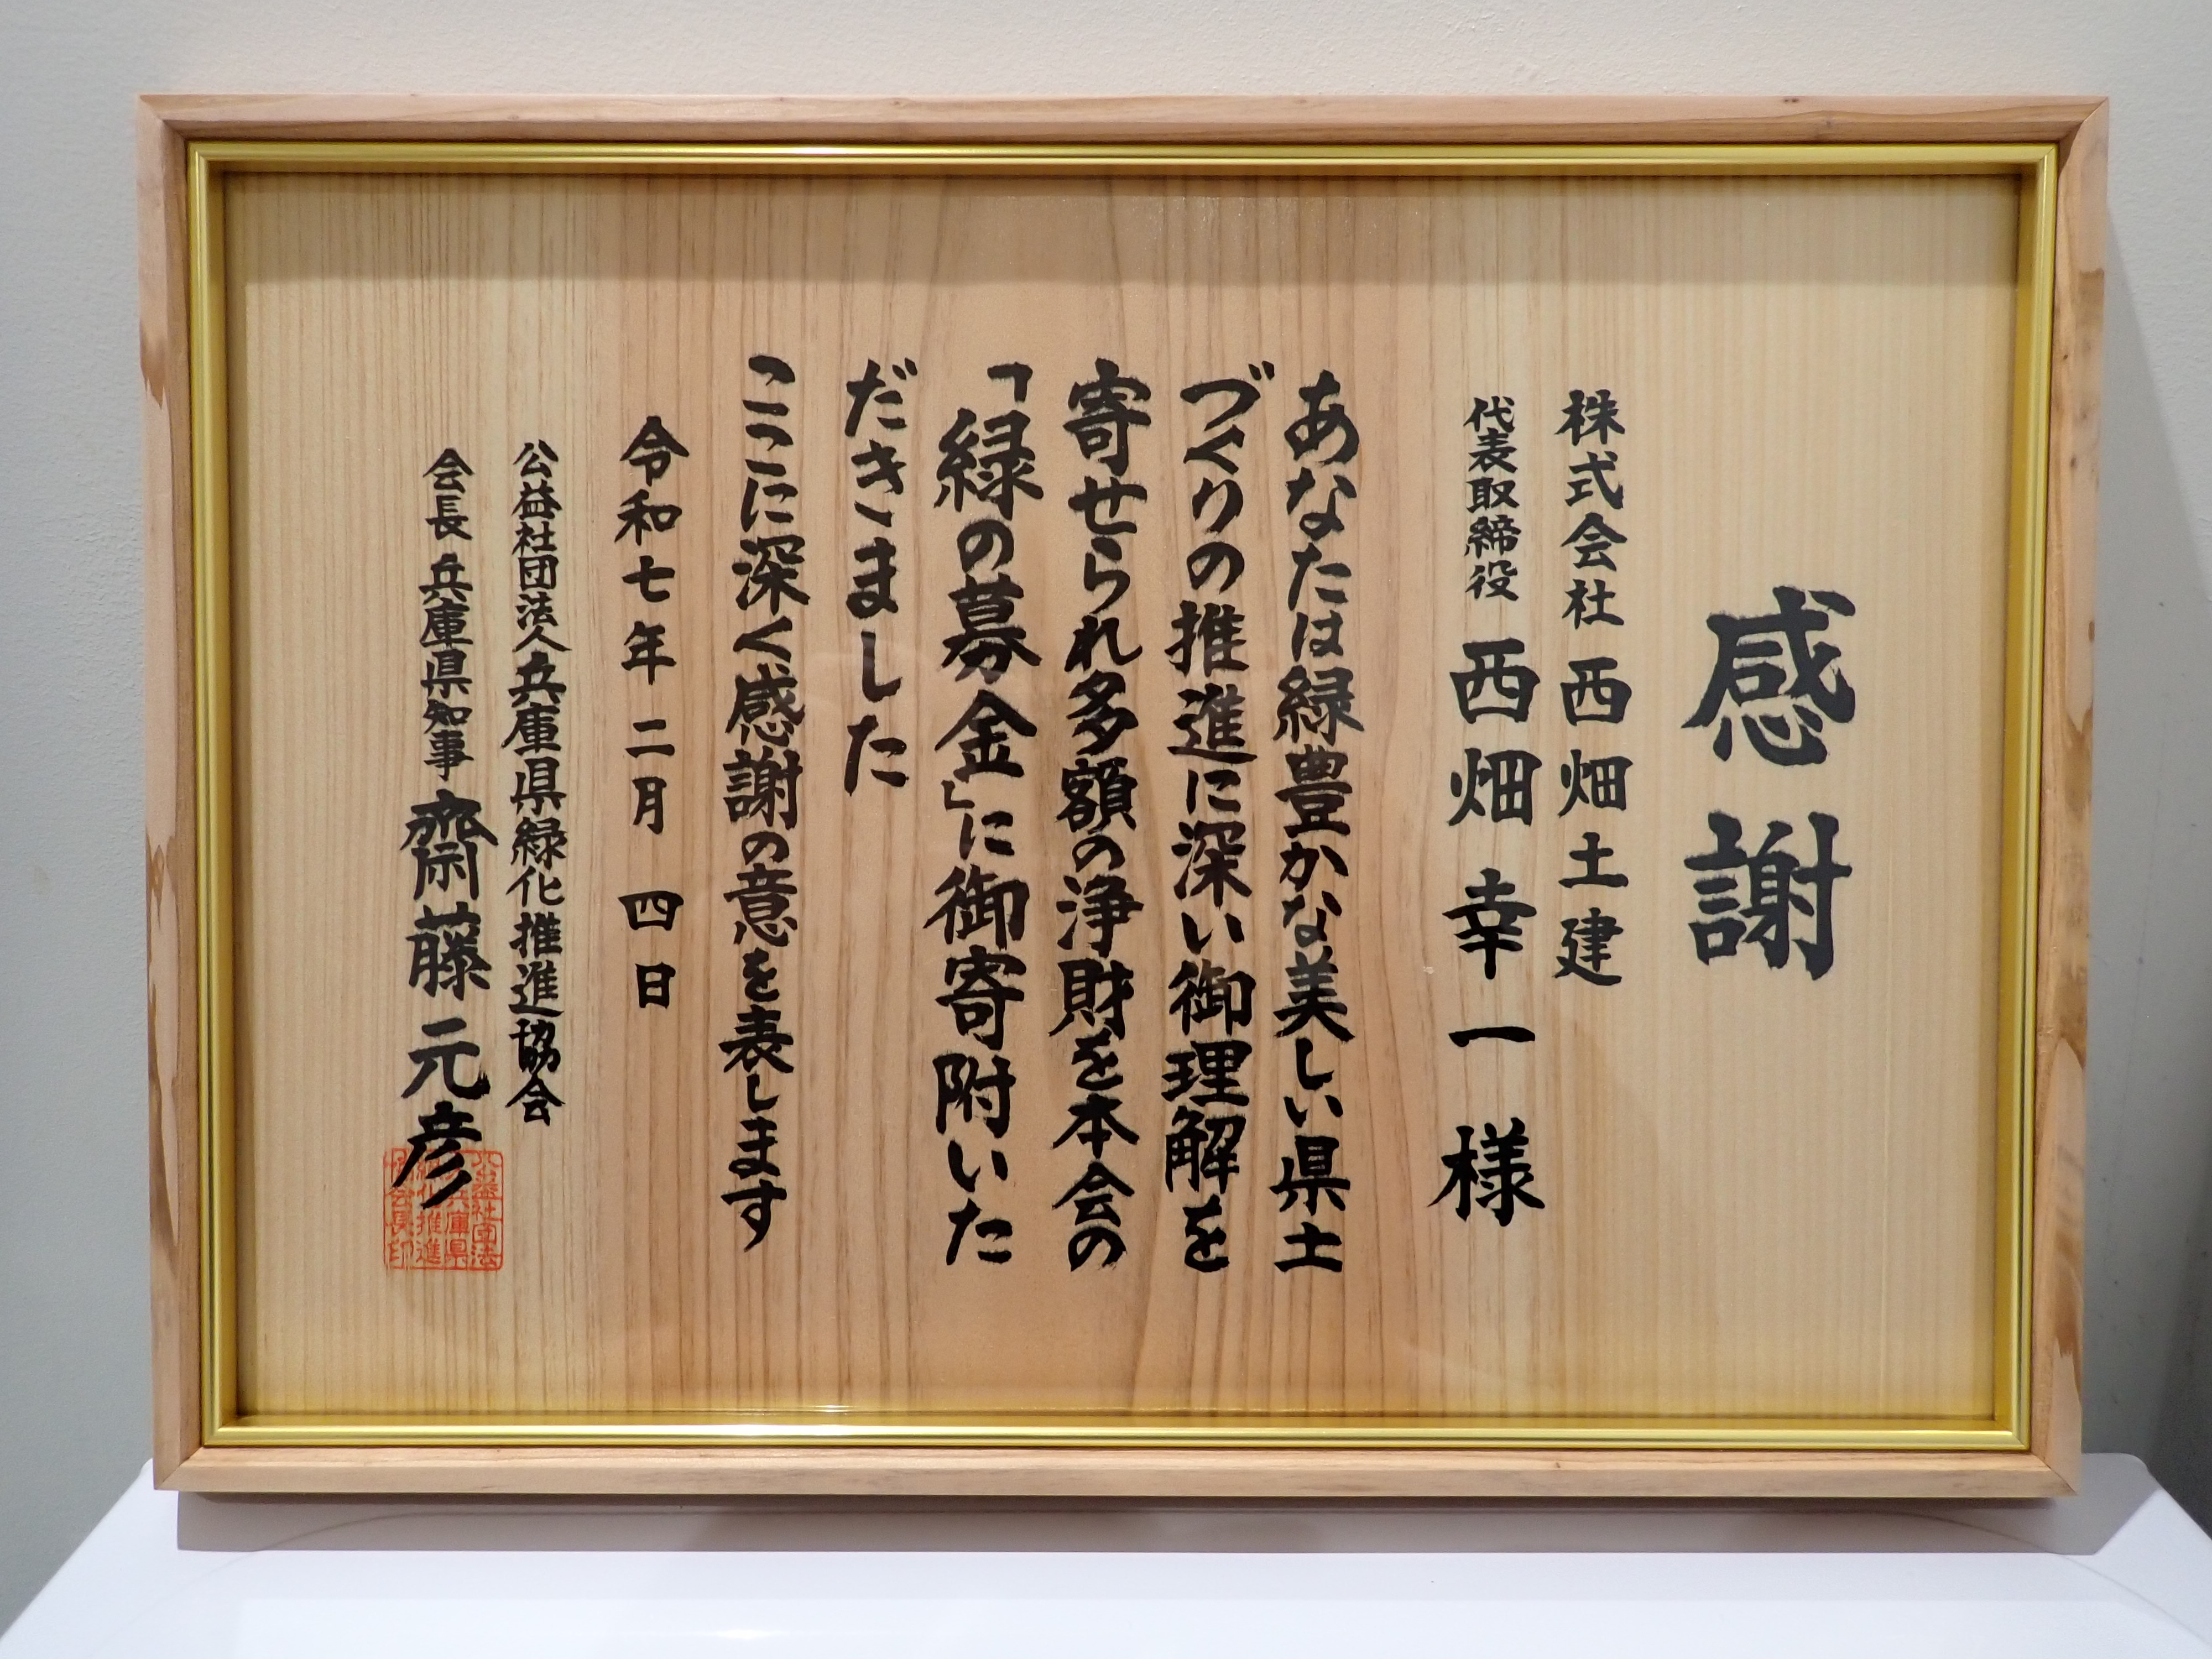 感謝
株式会社 西畑土建
代表取締役 西畑 幸一 様
あなたは緑豊かな美しい県土
づくりの推進に深い御理解を
寄せられ多額の浄財を本会の
「緑の募金」に御寄附いた
だきました
ここに深く感謝の意を表します
令和七年 二月 四日
公益社団法人兵庫県緑化推進協会
会長 兵庫県知事 齋藤元彦
公益社団法
兵庫県
緑化推進
会長印